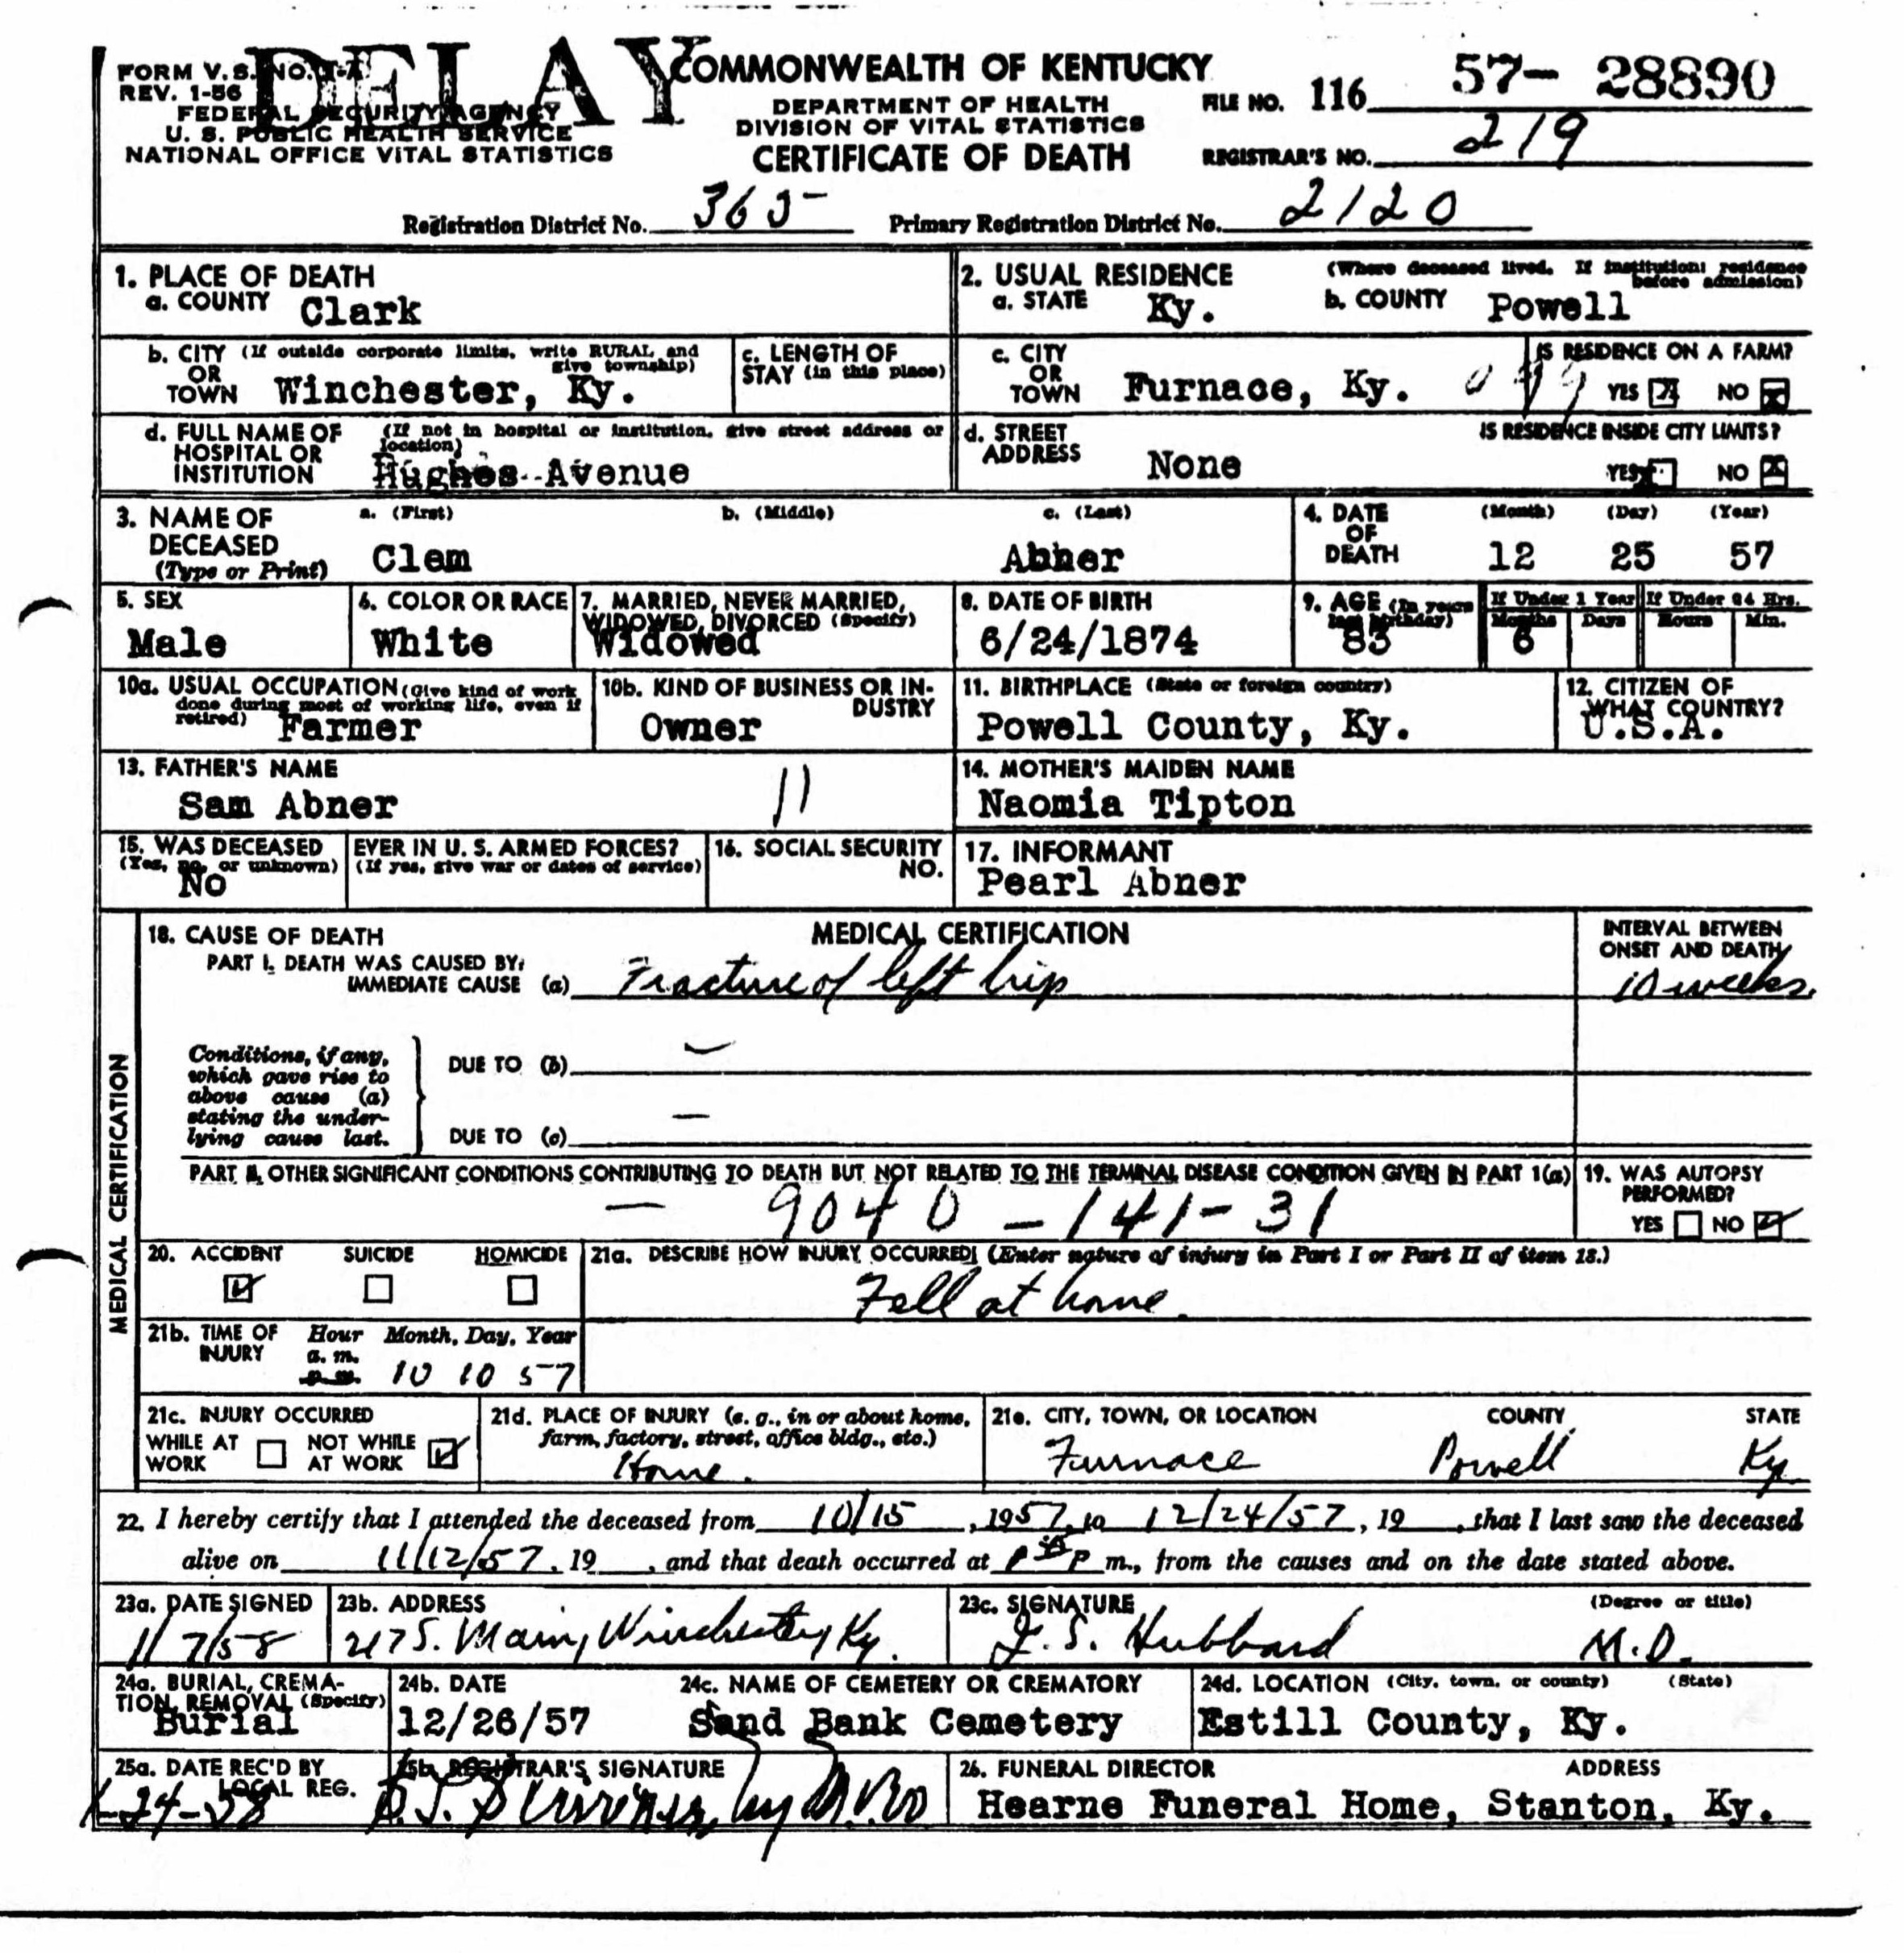 DELAY
FORM V. S. NO. 1-A
REV. 1-56
FEDERAL SECURITY AGENCY
U. S. PUBLIC HEALTH SERVICE
NATIONAL OFFICE VITAL STATISTICS
COMMONWEALTH OF KENTUCKY
DEPARTMENT OF HEALTH
DIVISION OF VITAL STATISTICS
CERTIFICATE OF DEATH
FILE NO. 116 57- 28890
REGISTRAR'S NO. 219
Registration District No. 365 Primary Registration District No. 2120
1. PLACE OF DEATH
a. COUNTY Clark
2. USUAL RESIDENCE (Where deceased lived. If institution: residence before admission)
a. STATE Ky. b. COUNTY Powell
b. CITY (If outside corporate limits, write RURAL and give township)
OR
TOWN Winchester, Ky.
c. LENGTH OF
STAY (in this place)
c. CITY
OR
TOWN Furnace, Ky.
IS RESIDENCE ON A FARM?
YES X NO X
d. FULL NAME OF
HOSPITAL OR
INSTITUTION
(If not in hospital or institution, give street address or location)
Hughes Avenue
d. STREET
ADDRESS None
IS RESIDENCE INSIDE CITY LIMITS?
YES NO X
3. NAME OF
DECEASED
(Type or Print)
a. (First) b. (Middle) c. (Last)
Clem Abner
4. DATE
OF
DEATH
(Month) (Day) (Year)
12 25 57
5. SEX
Male
6. COLOR OR RACE
White
7. MARRIED, NEVER MARRIED,
WIDOWED, DIVORCED (Specify)
Widowed
8. DATE OF BIRTH
6/24/1874
9. AGE (In years
last birthday)
83
If Under 1 Year If Under 24 Hrs.
Months Days Hours Min.
6
10a. USUAL OCCUPATION (Give kind of work
done during most of working life, even if
retired) Farmer
10b. KIND OF BUSINESS OR IN-
DUSTRY
Owner
11. BIRTHPLACE (State or foreign country)
Powell County, Ky.
12. CITIZEN OF
WHAT COUNTRY?
U.S.A.
13. FATHER'S NAME
Sam Abner
11
14. MOTHER'S MAIDEN NAME
Naomia Tipton
15. WAS DECEASED EVER IN U. S. ARMED FORCES?
(Yes, no, or unknown) (If yes, give war or dates of service)
No
16. SOCIAL SECURITY
NO.
17. INFORMANT
Pearl Abner
MEDICAL CERTIFICATION
18. CAUSE OF DEATH MEDICAL CERTIFICATION
PART I. DEATH WAS CAUSED BY:
IMMEDIATE CAUSE (a) Fracture of left hip
INTERVAL BETWEEN
ONSET AND DEATH
10 weeks.
Conditions, if any,
which gave rise to
above cause (a)
stating the under-
lying cause last.
DUE TO (b) —
DUE TO (c) —
PART II. OTHER SIGNIFICANT CONDITIONS CONTRIBUTING TO DEATH BUT NOT RELATED TO THE TERMINAL DISEASE CONDITION GIVEN IN PART 1(a)
— 9040 - 141-31
19. WAS AUTOPSY
PERFORMED?
YES NO
20. ACCIDENT SUICIDE HOMICIDE
21a. DESCRIBE HOW INJURY OCCURRED: (Enter nature of injury in Part I or Part II of item 18.)
Fell at home.
21b. TIME OF
INJURY
Hour Month, Day, Year
a. m.
p. m. 10 10 57
21c. INJURY OCCURRED
WHILE AT
WORK
NOT WHILE
AT WORK
21d. PLACE OF INJURY (e. g., in or about home,
farm, factory, street, office bldg., etc.)
Home.
21e. CITY, TOWN, OR LOCATION COUNTY STATE
Furnace Powell Ky
22. I hereby certify that I attended the deceased from 10/15, 1957, to 12/24/57, 19 , that I last saw the deceased
alive on 11/12/57, 19 , and that death occurred at P m., from the causes and on the date stated above.
23a. DATE SIGNED
1/7/58
23b. ADDRESS
217 S. Main, Winchester, Ky.
23c. SIGNATURE (Degree or title)
J. S. Hubbard M.D.
24a. BURIAL, CREMA-
TION, REMOVAL (Specify)
Burial
24b. DATE
12/26/57
24c. NAME OF CEMETERY OR CREMATORY
Sand Bank Cemetery
24d. LOCATION (City, town, or county) (State)
Estill County, Ky.
25a. DATE REC'D BY
LOCAL REG.
1-24-58
25b. REGISTRAR'S SIGNATURE
26. FUNERAL DIRECTOR ADDRESS
Hearne Funeral Home, Stanton, Ky.